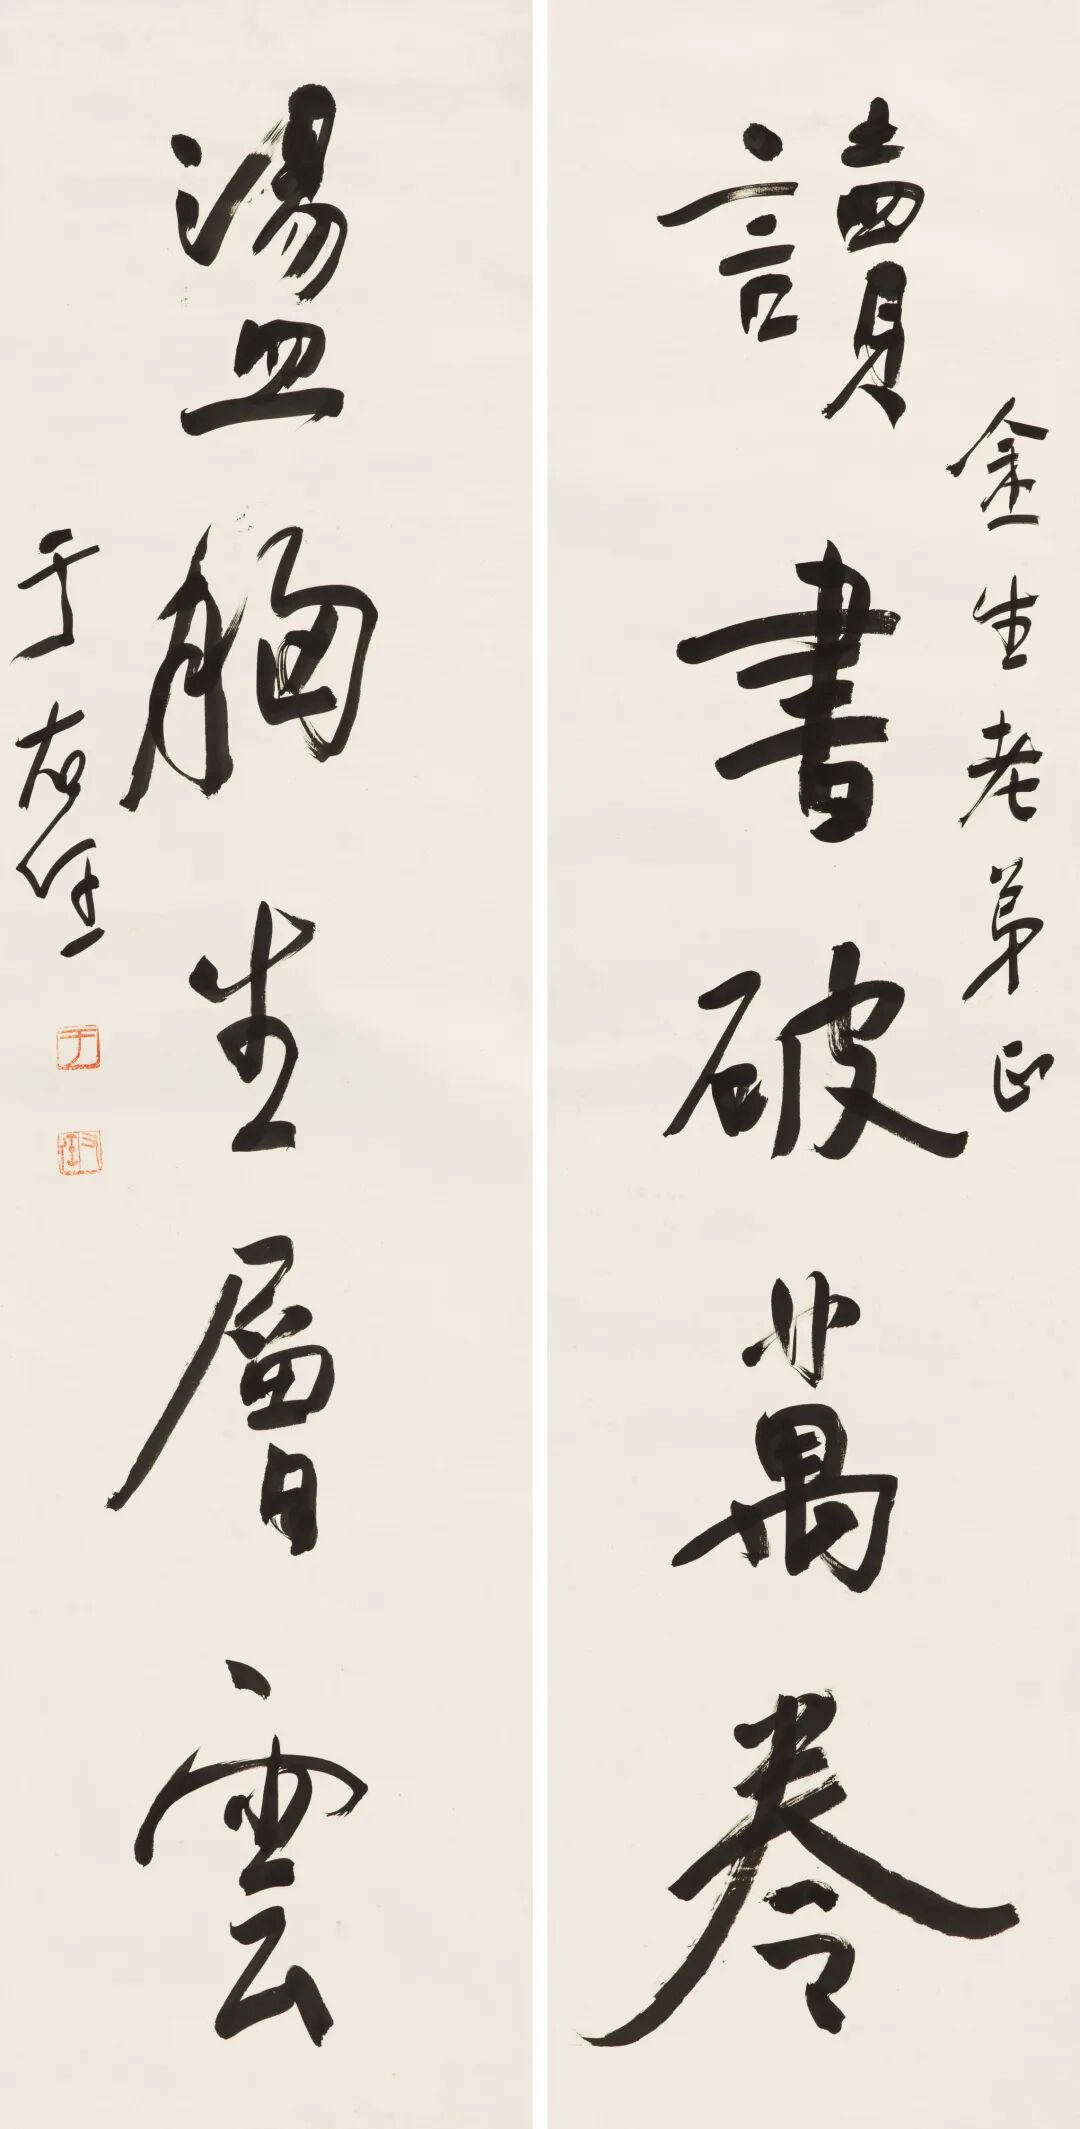 金生老弟正
讀書破萬卷
盪胸生層雲
于右任
于
右任